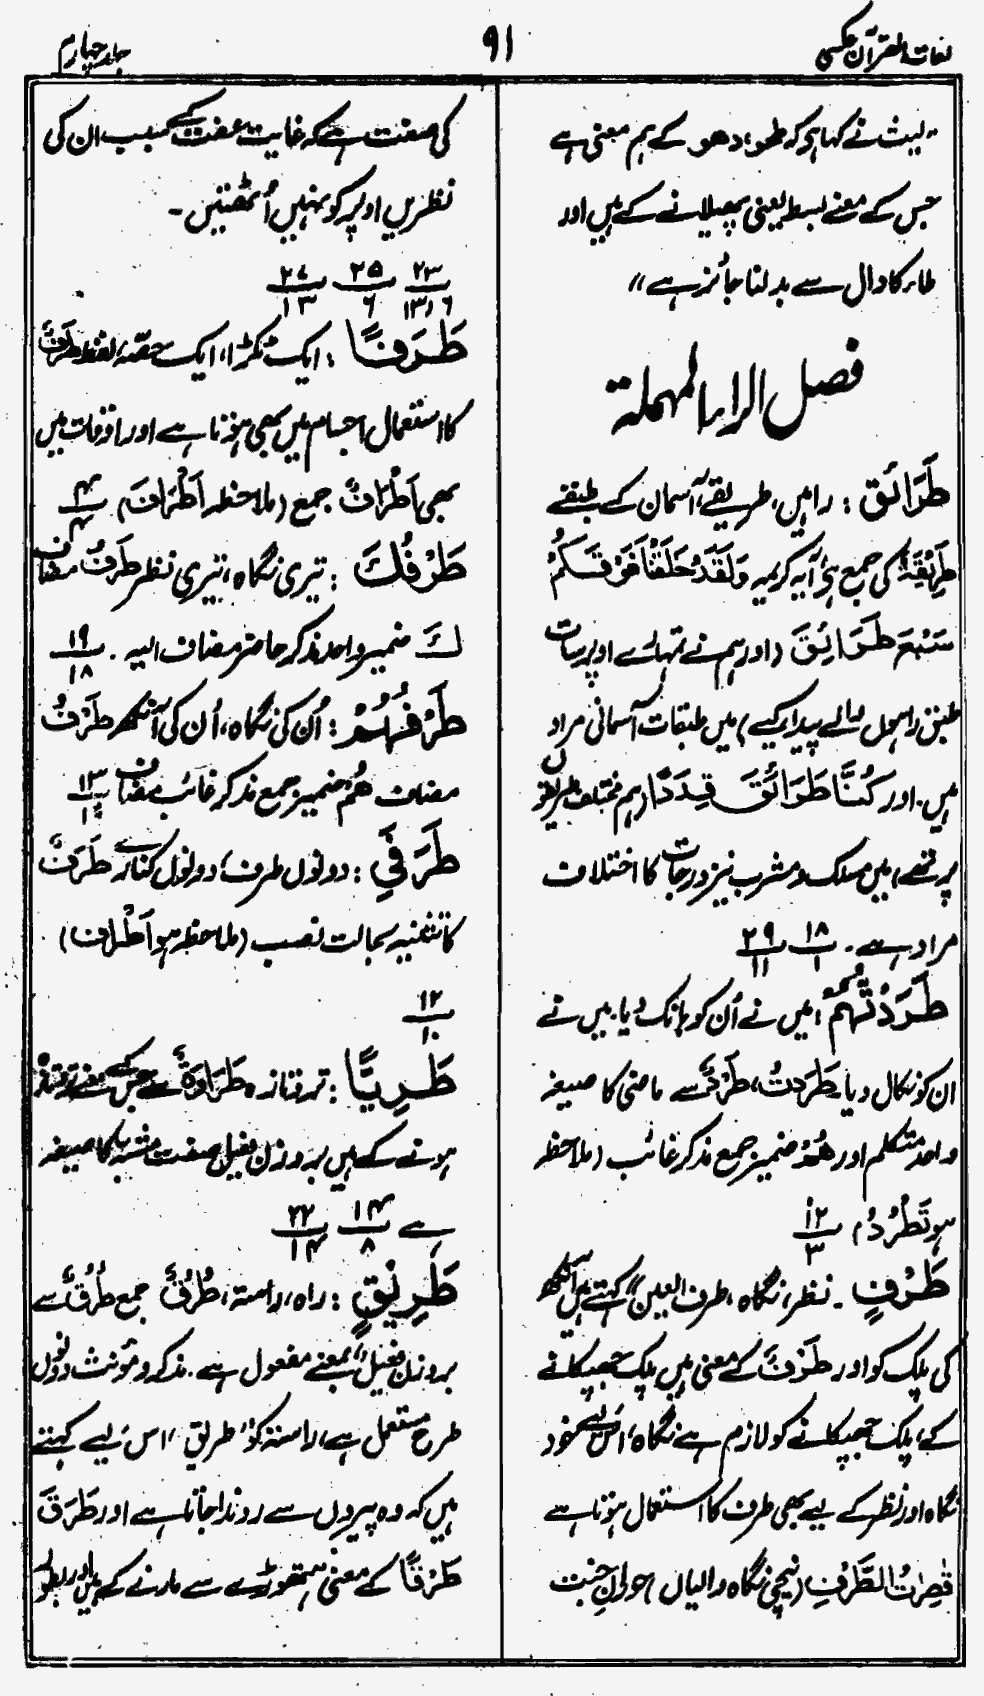 لغات القرآن عکسی
۹۱
جلد چہارم
"لیث نے کہا ہے کہ طحو، دحو کے ہم معنی ہے
جس کے معنے بسط یعنی پھیلانے کے ہیں اور
طاء کا دال سے بدلنا جائز ہے"
فصل الراء المہملة
طَرَائِق : راہیں، طریقے، آسمان کے طبقے
طَرِیْقَةٌ کی جمع ہے، آیہ کریمہ وَلَقَدْ خَلَقْنَا فَوْقَكُمْ
سَبْعَ طَرَائِقَ (اور ہم نے تمہارے اوپر سات
طبق راہوں والے پیدا کیے) میں طبقات آسمانی مراد
ہیں. اور كُنَّا طَرَائِقَ قِدَدًا (ہم مختلف طریقوں
پر تھے) میں مسلک و مشرب نیز درجات کا اختلاف
مراد ہے۔ ۱۸/۱ ۲۹/۱۱
طَرَدْتُّهُمْ : میں نے اُن کو ہانک دیا، میں نے
ان کو نکال دیا طَرَدتُّ، طَرْدٌ سے ماضی کا صیغہ
واحد متکلم اور هُمْ ضمیر جمع مذکر غائب (ملاحظہ
ہو تَطْرُدْ) ۱۲/۳
طَرْفٍ۔ نظر، نگاہ، "طرف العین" کہتے ہیں آنکھ
کی پلک کو اور طَرْفٌ کے معنی ہیں پلک جھپکانے
کے، پلک جھپکانے کو لازم ہے نگاہ، اس لیے خود
نگاہ اور نظر کے لیے بھی طرف کا استعمال ہوتا ہے
قٰصِرٰتُ الطَّرْفِ (نیچی نگاہ والیاں) حوران جنت
کی صفت ہے کہ غایت عفت کے سبب ان کی
نظریں اوپر کو نہیں اُٹھتیں۔
۲۳/۶،۱۳ ۲۵/۶ ۲۷/۱۳
طَرَفًا : ایک ٹکڑا، ایک حصّہ، لفظ طَرَفٌ
کا استعمال اجسام میں بھی ہوتا ہے اور اوقات میں
بھی، اَطْرَافٌ جمع (ملاحظہ اَطْرَافَ) ۴/۴
طَرْفُكَ : تیری نگاہ، تیری نظر طَرْفُ مضاف
كَ ضمیر واحد مذکر حاضر مضاف الیہ. ۱۹/۱۸
طَرْفُهُمْ : اُن کی نگاہ، اُن کی آنکھ طَرْفُ
مضاف هُمْ ضمیر جمع مذکر غائب مضاف ۱۳/۱۹
طَرَفَيِ : دونوں طرف، دونوں کنارے طَرَفٌ
کا تثنیہ بحالت نصب (ملاحظہ ہو اَطْرَاف)
۱۲/۱۰
طَرِیًّا : تر و تازہ طَرَاوَةٌ سے جس کے معنے تر و تازہ
ہونے کے ہیں بروزن فعیل صفت مشبہ کا صیغہ
ہے ۱۴/۸ ۲۲/۱۴
طَرِیْقٍ : راہ، راستہ، طُرُقٌ جمع طَرْقٌ سے
بروزن فعیل، بمعنے مفعول ہے. مذکر و مؤنث دونوں
طرح مستعمل ہے، راستہ کو "طریق" اس لیے کہتے
ہیں کہ وہ پیروں سے روندا جاتا ہے اور طَرَقَ
طَرْقًا کے معنی ہتھوڑے سے مارنے کے ہیں اور بطور